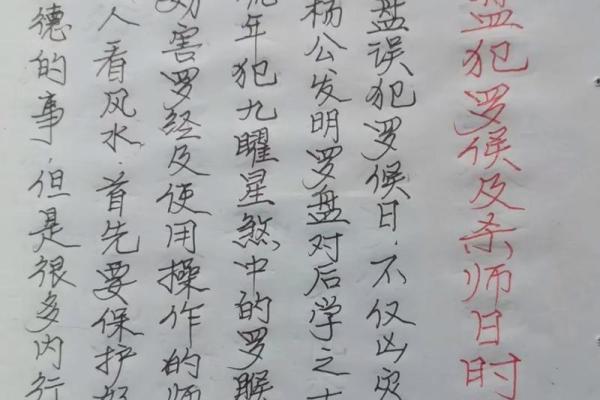 盘犯罗侯及杀师日时
盘误犯罗侯日、不仅凶灾
杨公发明罗盘对后学之
年犯九曜星煞中的罗睺
害罗经及使用操作的师
人看风水.首先要保护
德的事.但是很多内行